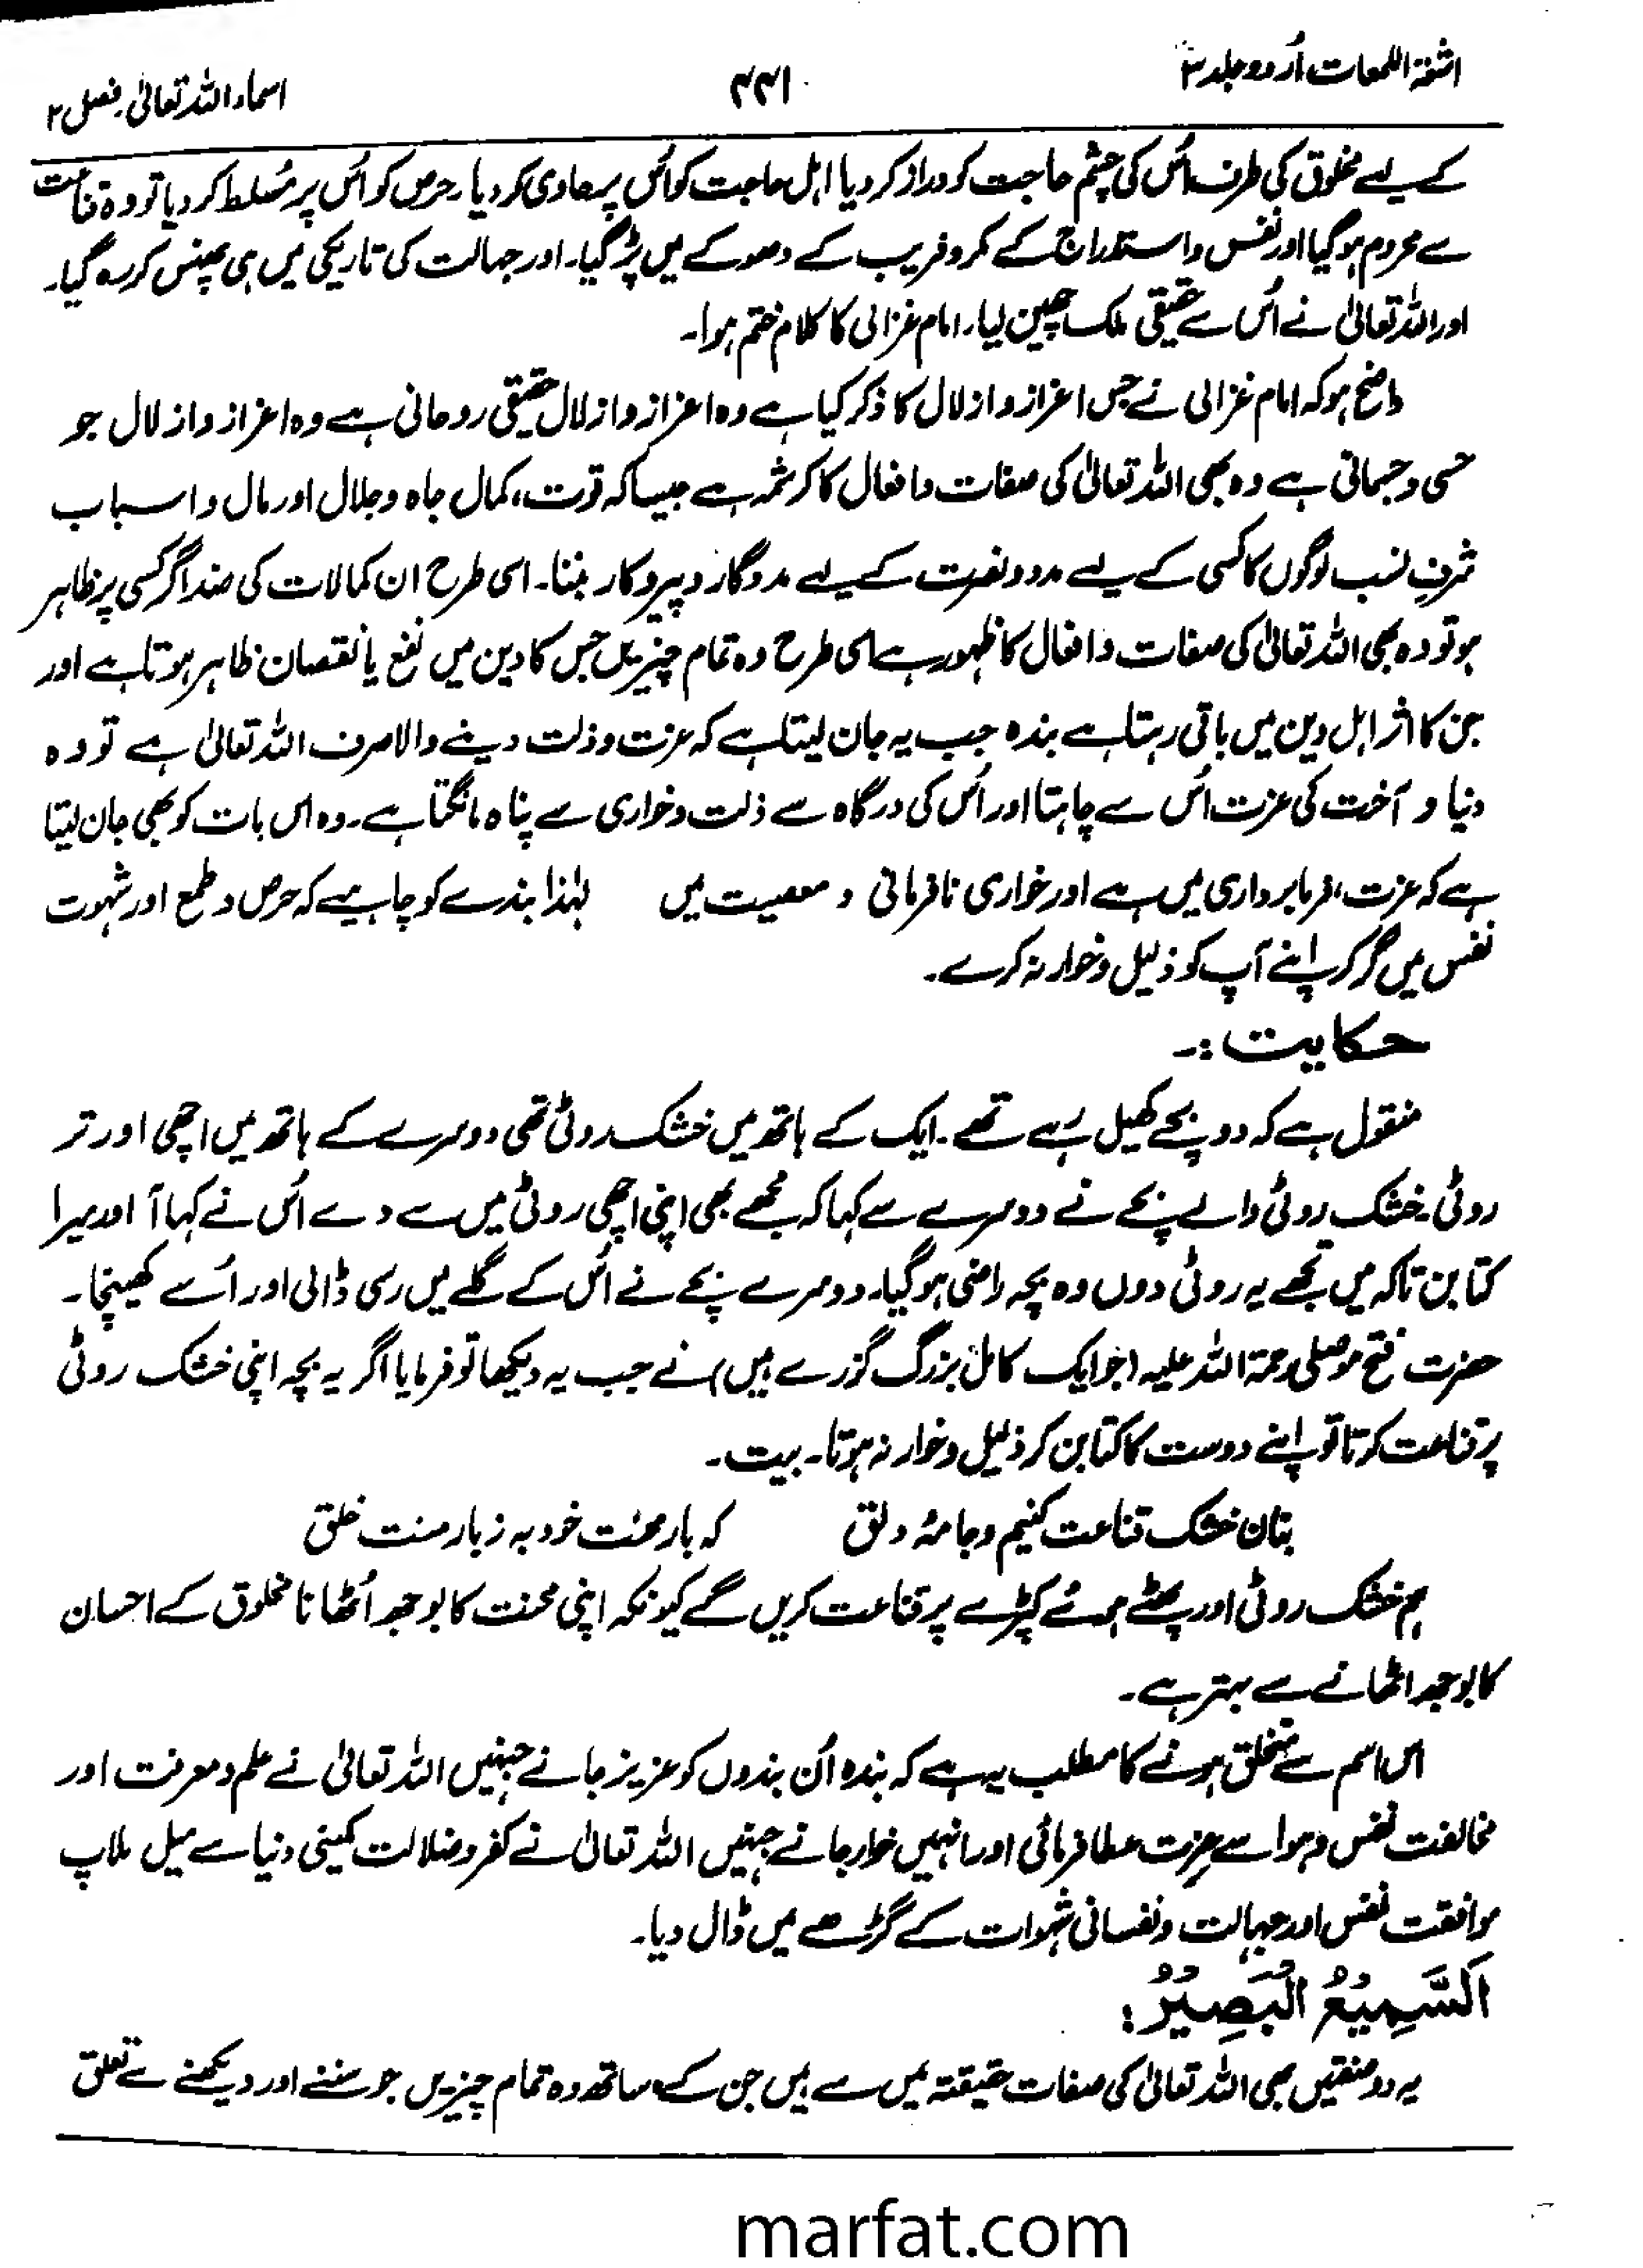 اشعۃ اللمعات اُردو جلد ۳
۴۳۱
اسماء اللہ تعالیٰ، فصل ۲
کے لیے مخلوق کی طرف اُس کی چشم حاجت کو دراز کر دیا اہل حاجت کو اُس پر حاوی کر دیا۔ حرص کو اُس پر مُسلط کر دیا تو وہ قناعت
سے محروم ہو گیا اور نفس و استدراج کے مکر و فریب کے دھوکے میں پڑ گیا۔ اور جہالت کی تاریکی میں ہی پھنس کر رہ گیا۔
اور اللہ تعالیٰ نے اُس سے حقیقی ملک چھین لیا۔ امام غزالی کا کلام ختم ہوا۔
واضح ہو کہ امام غزالی نے جس اعزاز و ازلال کا ذکر کیا ہے وہ اعزاز و ازلال حقیقی روحانی ہے وہ اعزاز و ازلال جو
حسی و جسمانی ہے وہ بھی اللہ تعالیٰ کی صفات و افعال کا کرشمہ ہے جیسا کہ قوت، کمال جاہ و جلال اور مال و اسباب
شرفِ نسب لوگوں کا کسی کے لیے مدد و نصرت کے لیے مددگار و پیروکار بننا۔ اسی طرح ان کمالات کی ضد اگر کسی پر ظاہر
ہو تو وہ بھی اللہ تعالیٰ کی صفات و افعال کا ظہور ہے اسی طرح وہ تمام چیزیں جس کا دین میں نفع یا نقصان ظاہر ہوتا ہے اور
جن کا اثر اہل دین میں باقی رہتا ہے بندہ جب یہ جان لیتا ہے کہ عزت و ذلت دینے والا صرف اللہ تعالیٰ ہے تو وہ
دنیا و آخت کی عزت اُس سے چاہتا اور اُس کی درگاہ سے ذلت و خواری سے پناہ مانگتا ہے۔ وہ اس بات کو بھی جان لیتا
ہے کہ عزت، فرمابرداری میں ہے اور خواری نافرمانی و معصیت میں لہٰذا بندے کو چاہیے کہ حرص و طمع اور شہوت
نفس میں گر کر اپنے آپ کو ذلیل و خوار نہ کرے۔
حکایت :۔
منقول ہے کہ دو بچے کھیل رہے تھے۔ ایک کے ہاتھ میں خشک روٹی تھی دوسرے کے ہاتھ میں اچھی اور تر
روٹی۔ خشک روٹی والے بچے نے دوسرے سے کہا کہ مجھے بھی اپنی اچھی روٹی میں سے دے اُس نے کہا آ اور میرا
کتا بن تاکہ میں تجھے یہ روٹی دوں وہ بچہ راضی ہو گیا۔ دوسرے بچے نے اُس کے گلے میں رسی ڈالی اور اُسے کھینچا۔
حضرت فتح موصلی رحمۃ اللہ علیہ (جو ایک کامل بزرگ گزرے ہیں) نے جب یہ دیکھا تو فرمایا اگر یہ بچہ اپنی خشک روٹی
پر قناعت کرتا تو اپنے دوست کا کتا بن کر ذلیل و خوار نہ ہوتا۔ بیت۔
بنان خشک قناعت کنیم و جامۂ دلق کہ بار محنت خود بہ ز بار منت خلق
ہم خشک روٹی اور پھٹے ہوئے کپڑے پر قناعت کریں گے کیونکہ اپنی محنت کا بوجھ اُٹھانا مخلوق کے احسان
کا بوجھ اٹھانے سے بہتر ہے۔
اس اسم سے متخلق ہونے کا مطلب یہ ہے کہ بندہ اُن بندوں کو عزیز جانے جنہیں اللہ تعالیٰ نے علم و معرفت اور
مخالفت نفس و ہوا سے عزت عطا فرمائی اور انہیں خوار جانے جنہیں اللہ تعالیٰ نے کفر و ضلالت کمینی دنیا سے میل ملاپ
موافقت نفس اور جہالت و نفسانی شہوات کے گڑھے میں ڈال دیا۔
اَلسَّمِیْعُ الْبَصِیْرُ :
یہ دو صفتیں بھی اللہ تعالیٰ کی صفات حقیقتہ میں سے ہیں جن کے ساتھ وہ تمام چیزیں جو سننے اور دیکھنے سے تعلق
marfat.com